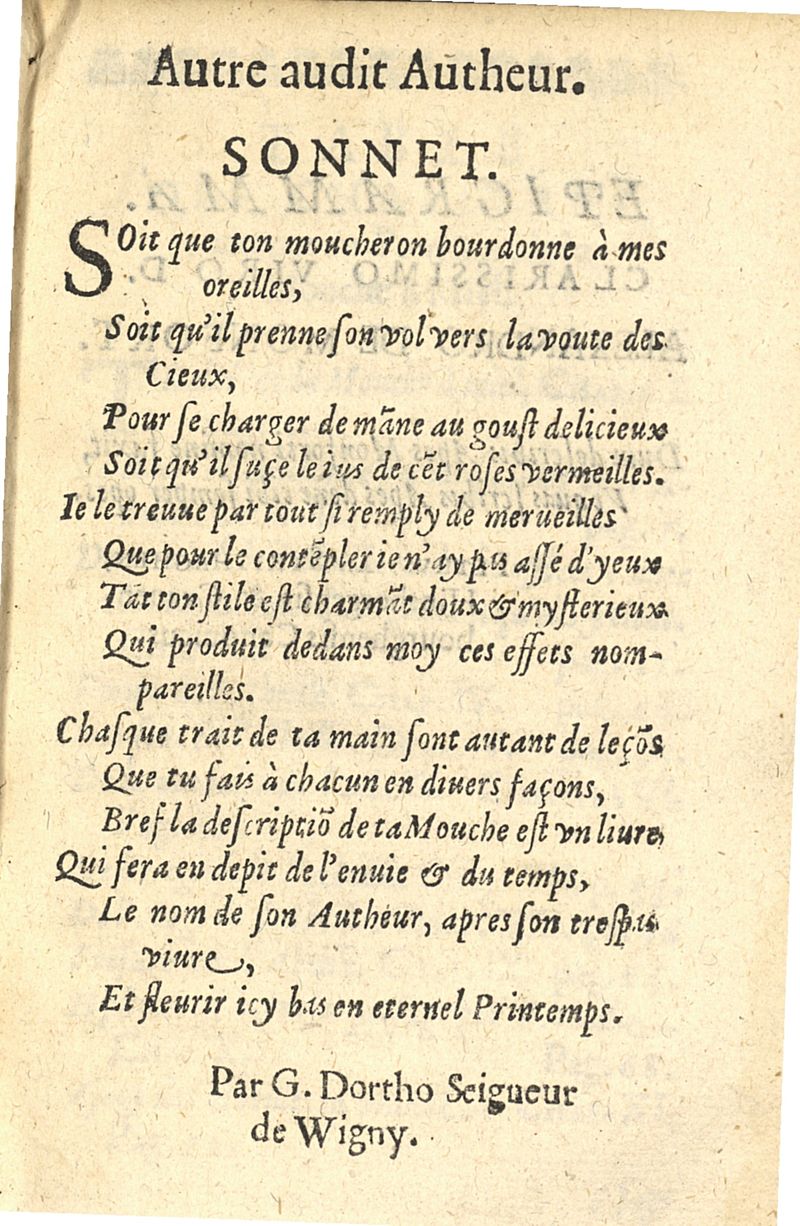 Autre audit Autheur.
SONNET.
SOit que ton moucheron bourdonne à mes
oreilles,
Soit qu'il prenne ſon vol vers la voute des
Cieux,
Pour ſe charger de mãne au gouſt delicieux
Soit qu'il ſuçe le ius de cẽt roſes vermeilles.
Ie le treuue par tout ſi remply de merueilles
Que pour le contẽpler ie n'ay pas aſſé d'yeux
Tãt ton ſtile eſt charmãt doux & myſterieux
Qui produit dedans moy ces effets nom-
pareilles.
Chaſque trait de ta main ſont autant de leçõs
Que tu fais à chacun en diuers façons,
Bref la deſcriptiõ de ta Mouche eſt vn liure,
Qui fera en depit de l'enuie & du temps,
Le nom de ſon Autheur, apres ſon treſpas
viure,
Et fleurir icy bas en eternel Printemps.
Par G. Dortho Seigueur
de Wigny.